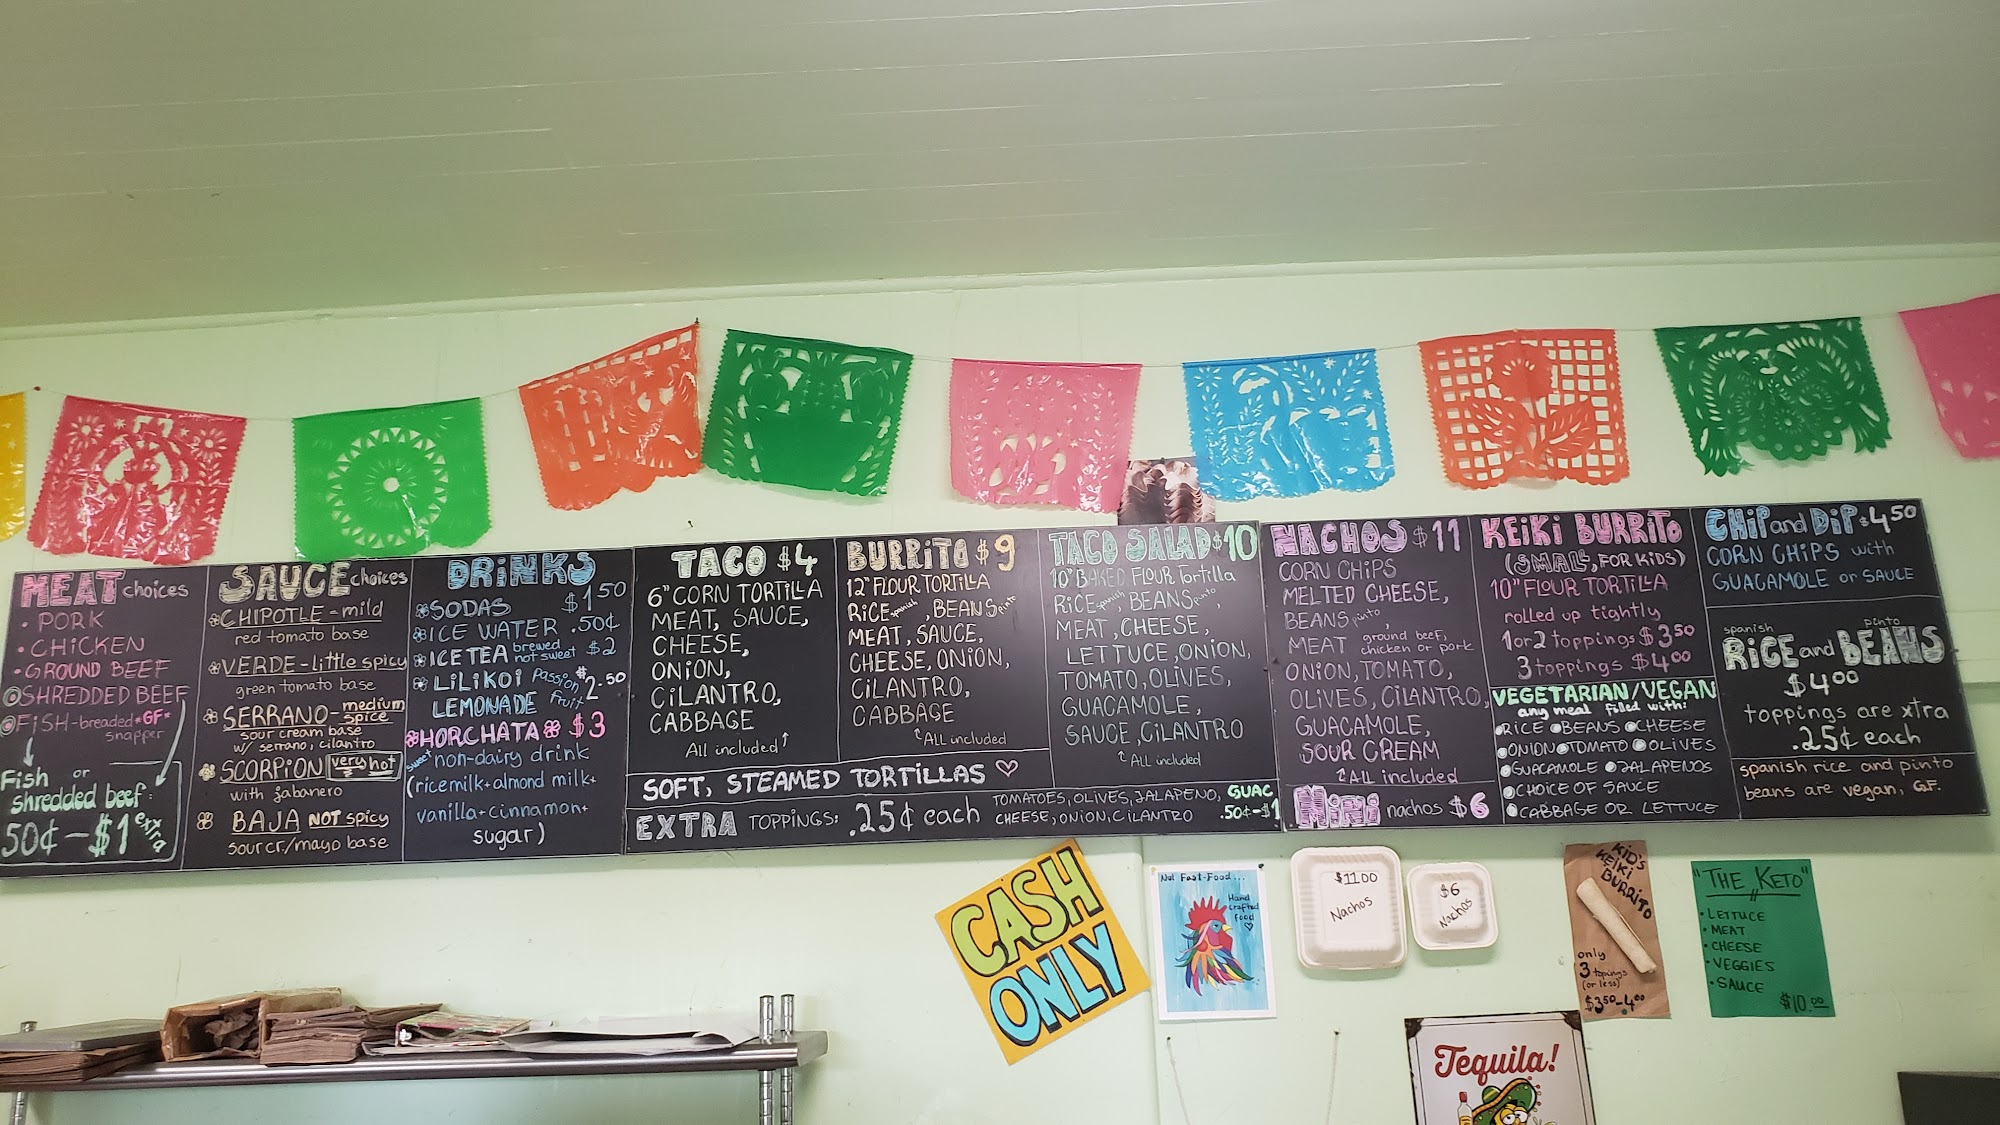 MEAT choices
• PORK
• CHICKEN
• GROUND BEEF
SHREDDED BEEF
FISH-breaded *GF*
snapper
Fish or
shredded beef:
50¢-$1 extra
SAUCE choices
CHIPOTLE - mild
red tomato base
VERDE - little spicy
green tomato base
SERRANO - medium spice
sour cream base
w/ serrano, cilantro
SCORPION very hot
with jabanero
BAJA NOT spicy
sour cr./mayo base
DRINKS
SODAS $1 50
ICE WATER .50¢
ICE TEA brewed not sweet $2
LILIKOI passion fruit $2.50
LEMONADE
HORCHATA $3
sweet non-dairy drink
(ricemilk+almond milk+
vanilla+cinnamon+
sugar)
TACO $4
6" CORN TORTILLA
MEAT, SAUCE,
CHEESE,
ONION,
CILANTRO,
CABBAGE
All included
BURRITO $9
12" FLOUR TORTILLA
RICE spanish, BEANS pinto
MEAT, SAUCE,
CHEESE, ONION,
CILANTRO,
CABBAGE
ALL included
TACO SALAD $10
10" BAKED FLOUR Tortilla
RICE spanish, BEANS pinto,
MEAT, CHEESE,
LETTUCE, ONION,
TOMATO, OLIVES,
GUACAMOLE,
SAUCE, CILANTRO
ALL included
SOFT, STEAMED TORTILLAS
EXTRA TOPPINGS: .25¢ each
TOMATOES, OLIVES, JALAPENO, GUAC
CHEESE, ONION, CILANTRO .50¢-$1
NACHOS $11
CORN CHIPS
MELTED CHEESE,
BEANS pinto,
MEAT ground beef, chicken or pork
ONION, TOMATO,
OLIVES, CILANTRO,
GUACAMOLE,
SOUR CREAM
ALL included
MINI nachos $6
KEIKI BURRITO
(SMALL, FOR KIDS)
10" FLOUR TORTILLA
rolled up tightly
1 or 2 toppings $3 50
3 toppings $4 00
VEGETARIAN/VEGAN
any meal filled with:
RICE BEANS CHEESE
ONION TOMATO OLIVES
GUACAMOLE JALAPENOS
CHOICE OF SAUCE
CABBAGE OR LETTUCE
CHIP and DIP $4.50
CORN CHIPS with
GUACAMOLE or SAUCE
spanish pinto
RICE and BEANS
$4 00
toppings are xtra
.25¢ each
spanish rice and pinto
beans are vegan, G.F.
CASH
ONLY
Not Fast-Food...
Hand
Crafted
Food
$11.00
Nachos
$6
Nachos
KID'S
KEIKI
BURRITO
only
3 toppings
(or less)
$3 50-4 00
"THE KETO"
• LETTUCE
• MEAT
• CHEESE
• VEGGIES
• SAUCE
$10.00
Tequila!